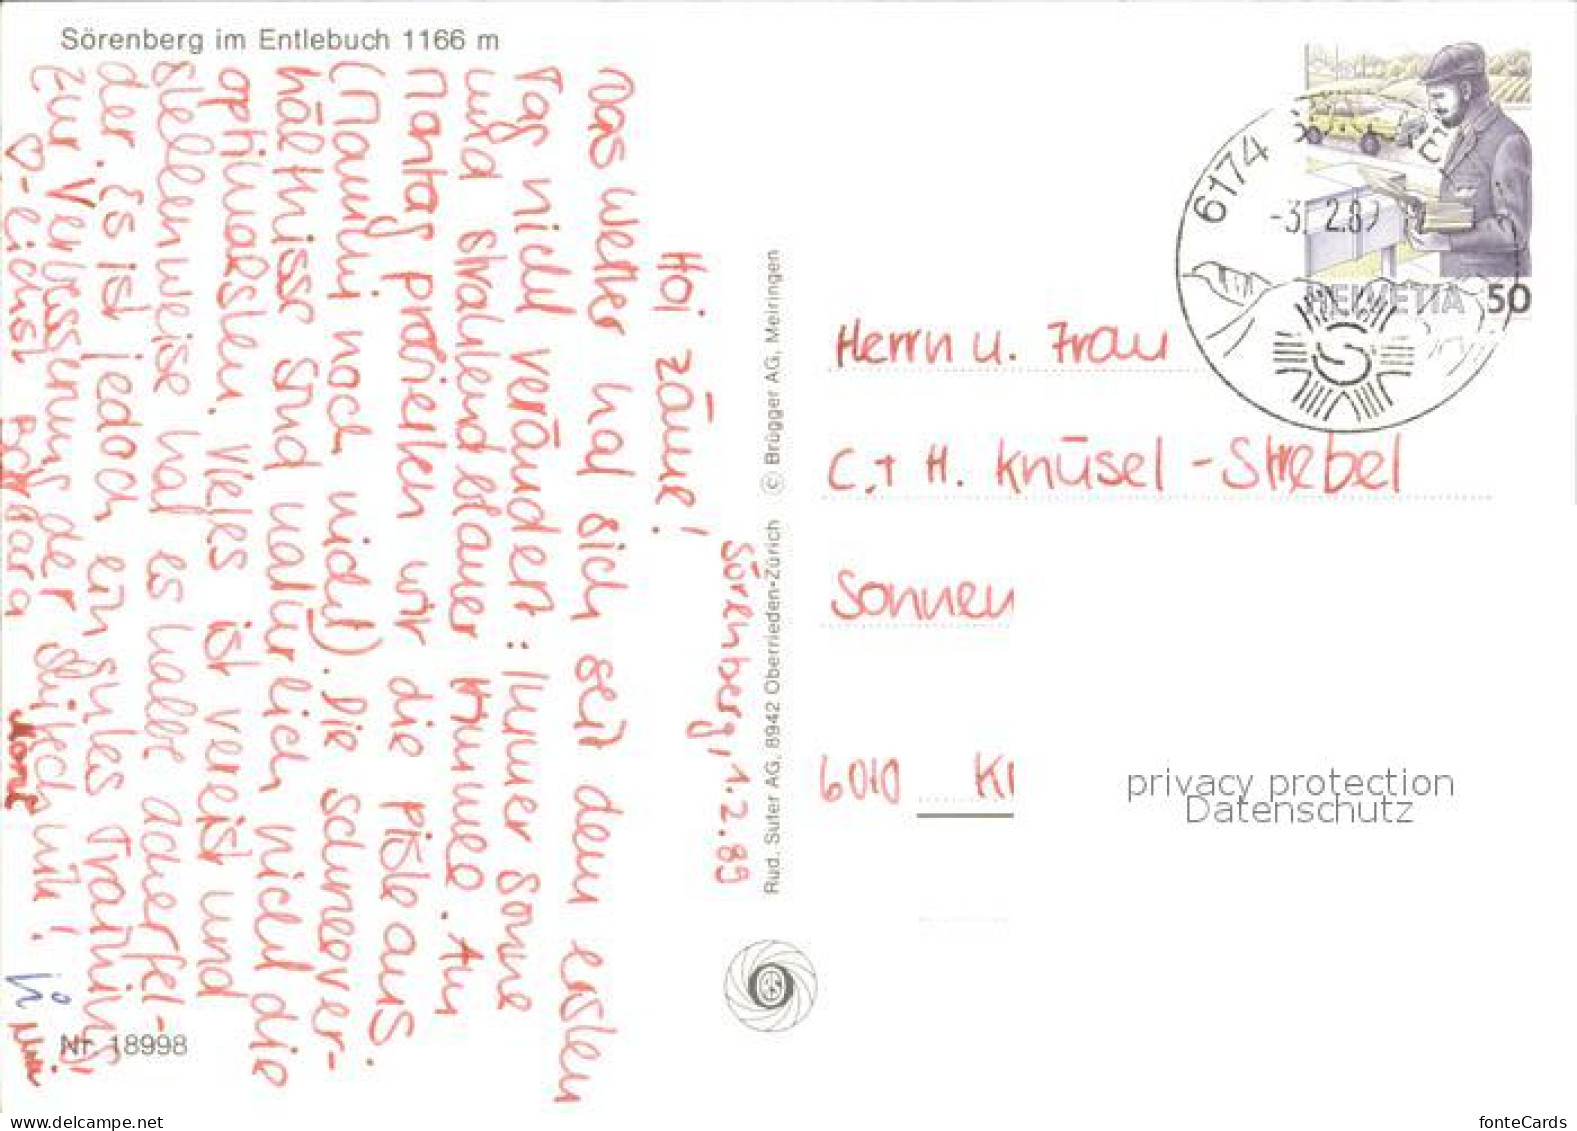 Sörenberg im Entlebuch 1166 m
Sörenberg, 1.2.89
Hoi zäme!
Das Wetter hat sich seit dem ersten
Tag nicht verändert: Immer Sonne
und strahlendblauer Himmel. Am
Montag probierten wir die Piste aus.
(Mammi noch nicht). Die Schneever-
hältnisse sind natürlich nicht die
optimalsten. Vieles ist vereist und
stellenweise hat es halbe Ächerfel-
der. Es ist jedoch ein gutes Training
zur Verbesserung der Skitechnik!
♡-lichst Barbara
Nr. 18998
Rud. Suter AG, 8942 Oberrieden-Zürich © Brügger AG, Meiringen
6174
-3. 2.89
HELVETIA 50
Herrn u. Frau
C. + H. Knüsel - Strebel
Sonnen
6010 Kr
privacy protection
Datenschutz
www.delcampe.net
fonteCards